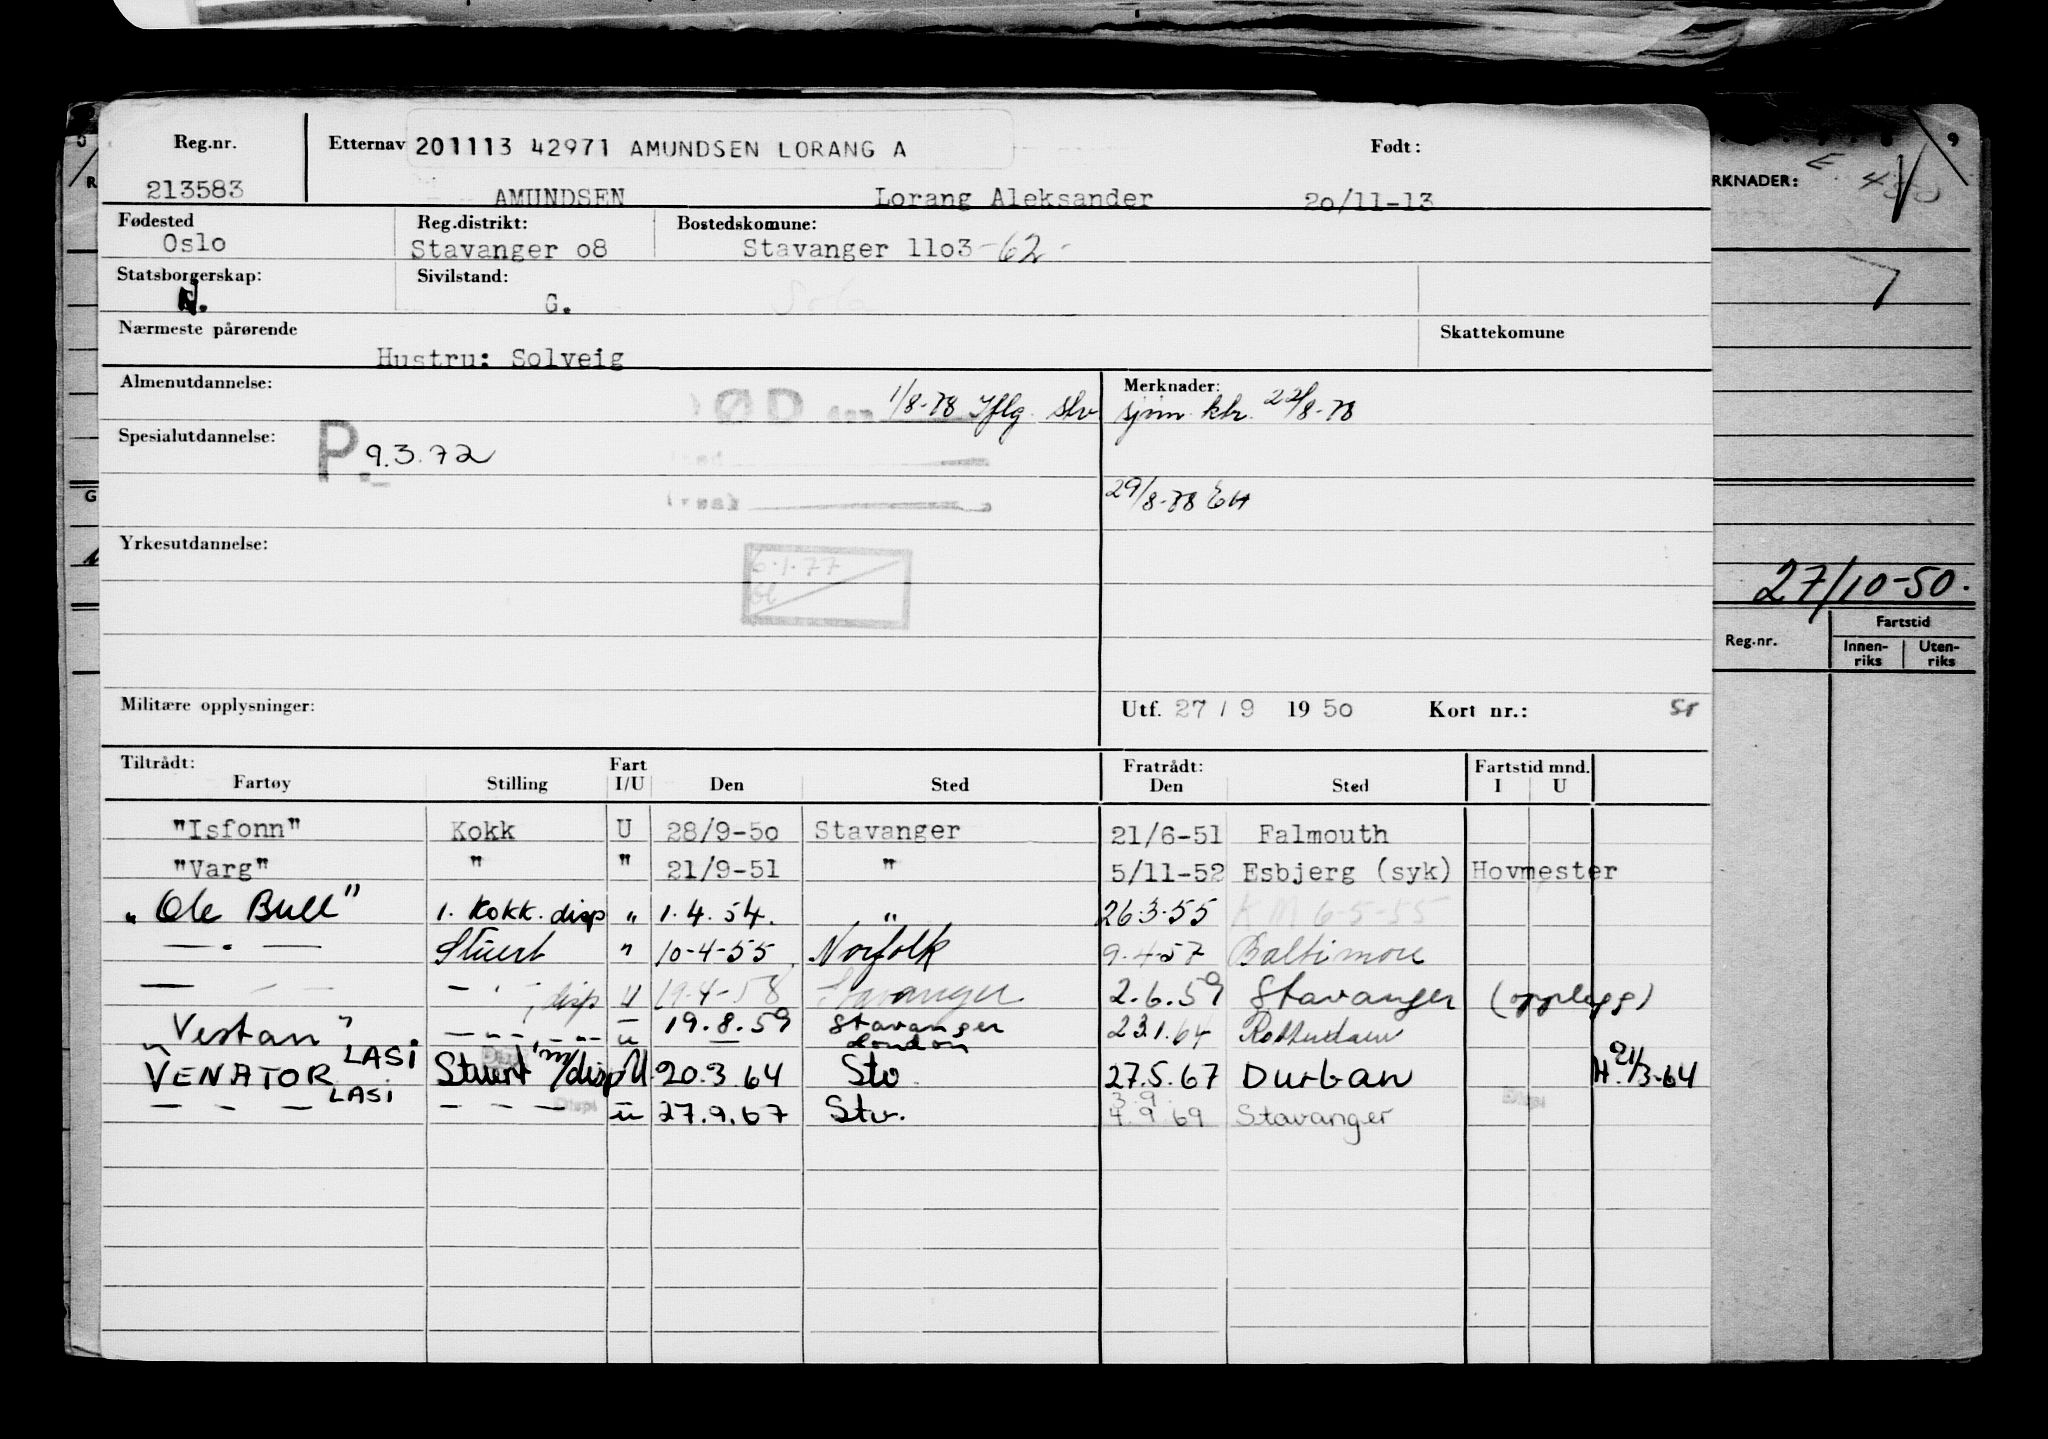 Reg.nr. Etternav 201113 42971 AMUNDSEN LORANG A Født:
213583 AMUNDSEN Lorang Aleksander 20/11-13
RKNADER:
Fødested Reg.distrikt: Bostedskomune:
Oslo Stavanger 08 Stavanger 1103-62-
Statsborgerskap: Sivilstand:
N. G.
Nærmeste pårørende Skattekomune
Hustru: Solveig
Almenutdannelse: ØD 1/8-78 Iflg. stv Merknader:
sjøm. ktr. 22/8-78
Spesialutdannelse: P. 9.3.72
29/8-78 EH
Yrkesutdannelse: 6.1.77
27/10-50.
Reg.nr. Fartstid
Innen-riks Uten-riks
Militære opplysninger: Utf. 27 / 9 19 50 Kort nr.: Sr
Tiltrådt: Fart Fratrådt: Fartstid mnd.
Fartøy Stilling I/U Den Sted Den Sted I U
"Isfonn" Kokk U 28/9-50 Stavanger 21/6-51 Falmouth
"Varg" " " 21/9-51 " 5/11-52 Esbjerg (syk) Hovmester
"Ole Bull" 1. Kokk. disp " 1.4.54. " 26.3.55 KM 6-5-55
— . — Stuert " 10-4-55 Norfolk 9.4.57 Baltimore
— — — - ' - , disp U 19.4-58 Stavanger 2.6.59 Stavanger (opplegg)
"Vestan" — - - - - u 19.8.59 Stavanger 23.1.64 Rotterdam
London
VENATOR LASI Stuert m/disp U 20.3.64 Stv. 27.5.67 Durban H. 21/3-64
— - - — LASI — - - — Disp u 27.9.67 Stv. 3.9.
4.9.69 Stavanger